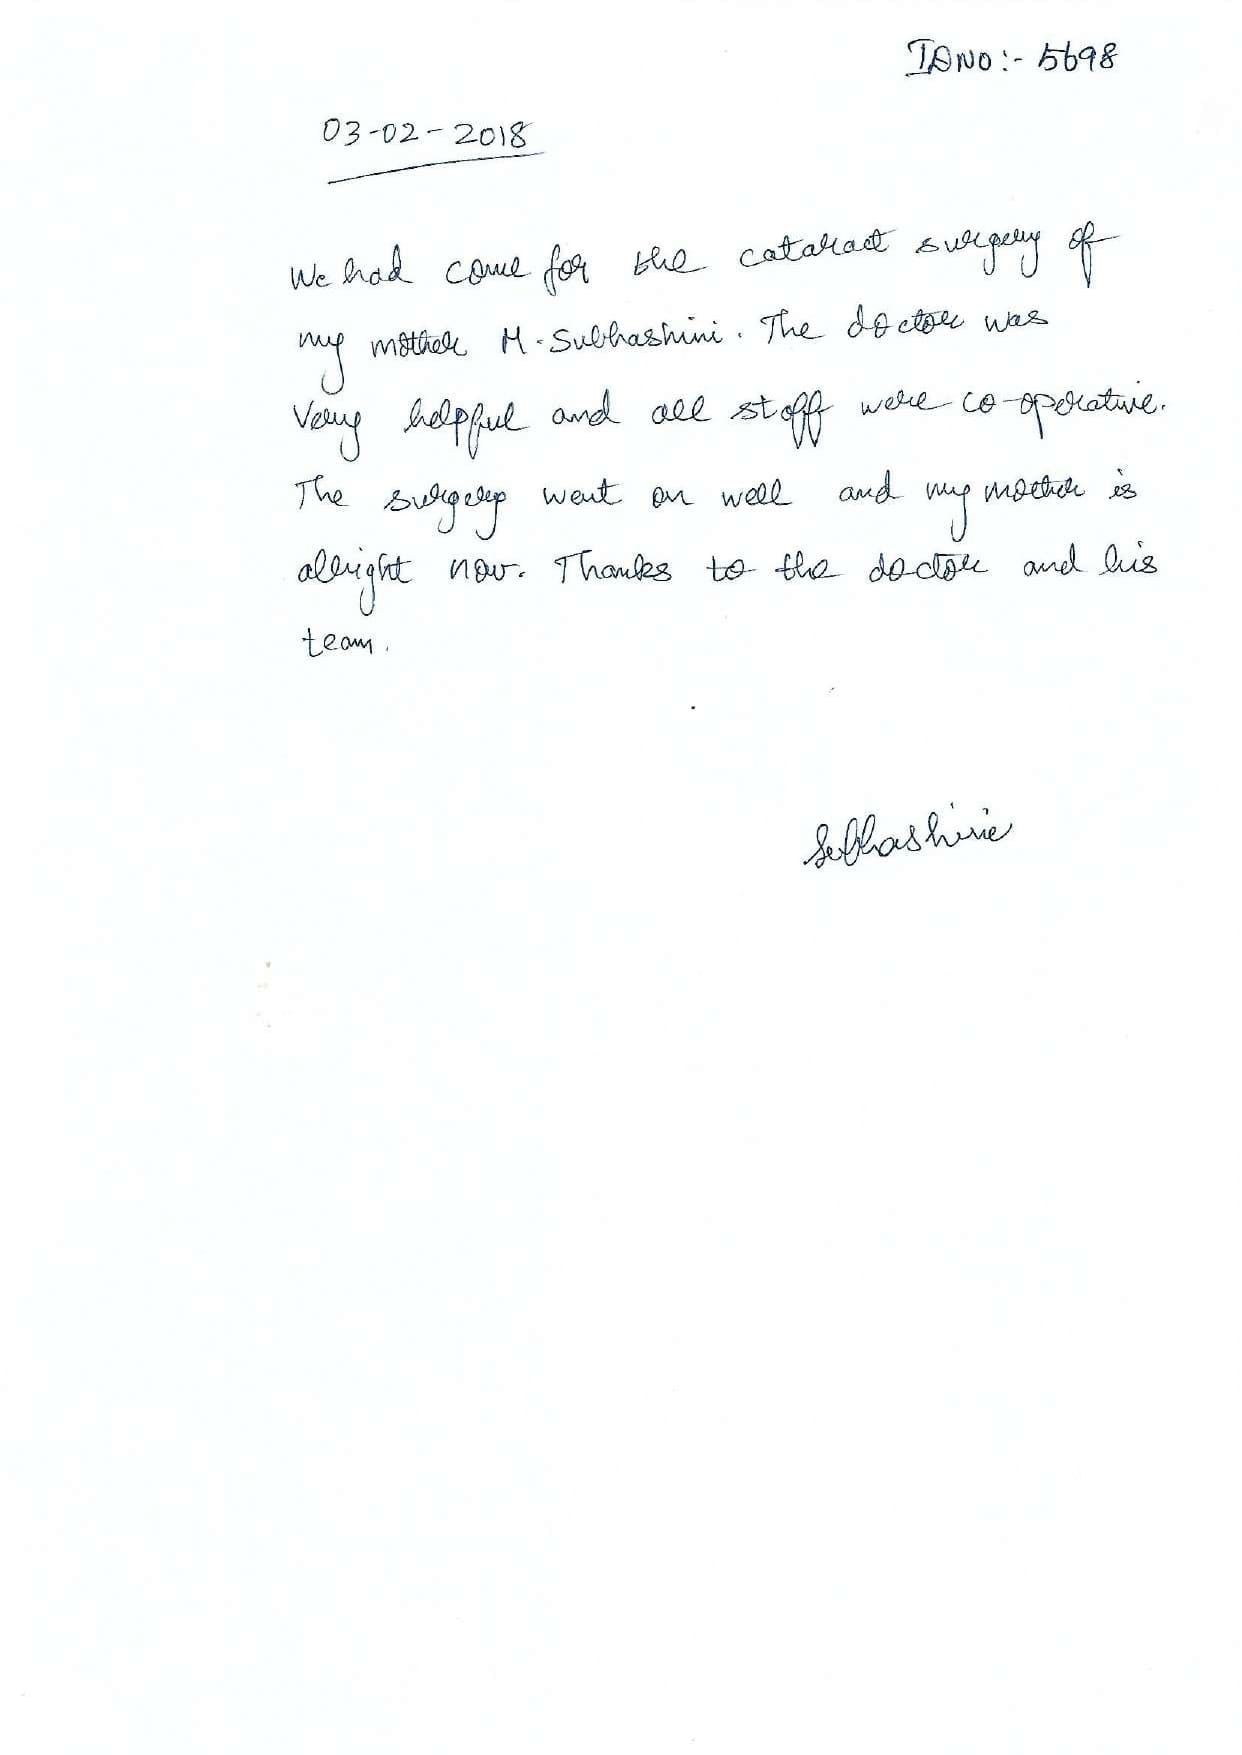 IDNO:- 5698
03-02-2018
We had come for the cataract surgery of
my mother M. Subhashini. The doctor was
Very helpful and all staff were co-operative.
The surgery went on well and my mother is
allright now. Thanks to the doctor and his
team.
Subhashinie